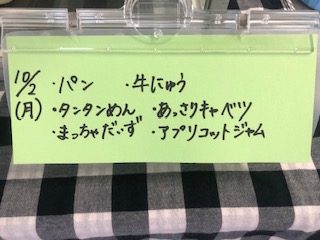 10/2 ・パン ・牛にゅう
(月) ・タンタンめん ・あっさりキャベツ
・まっちゃだいず ・アプリコットジャム